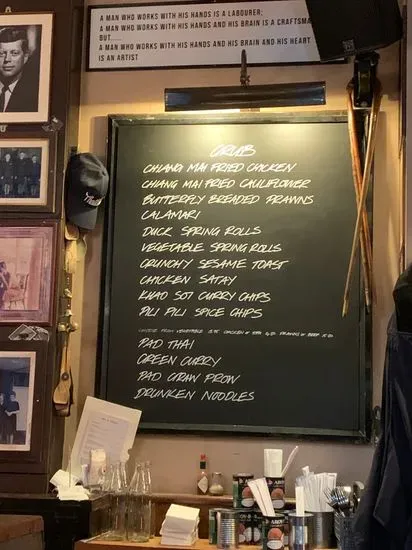 A MAN WHO WORKS WITH HIS HANDS IS A LABOURER;
A MAN WHO WORKS WITH HIS HANDS AND HIS BRAIN IS A CRAFTSMAN
BUT......
A MAN WHO WORKS WITH HIS HANDS AND HIS BRAIN AND HIS HEART
IS AN ARTIST
GRUB
CHIANG MAI FRIED CHICKEN
CHIANG MAI FRIED CAULIFLOWER
BUTTERFLY BREADED PRAWNS
CALAMARI
DUCK SPRING ROLLS
VEGETABLE SPRING ROLLS
CRUNCHY SESAME TOAST
CHICKEN SATAY
KHAO SOI CURRY CHIPS
PILI PILI SPICE CHIPS
CHOOSE FROM VEGETABLE CHICKEN OR PRAWNS OR BEEF
PAD THAI
GREEN CURRY
PAD GRAW PROW
DRUNKEN NOODLES